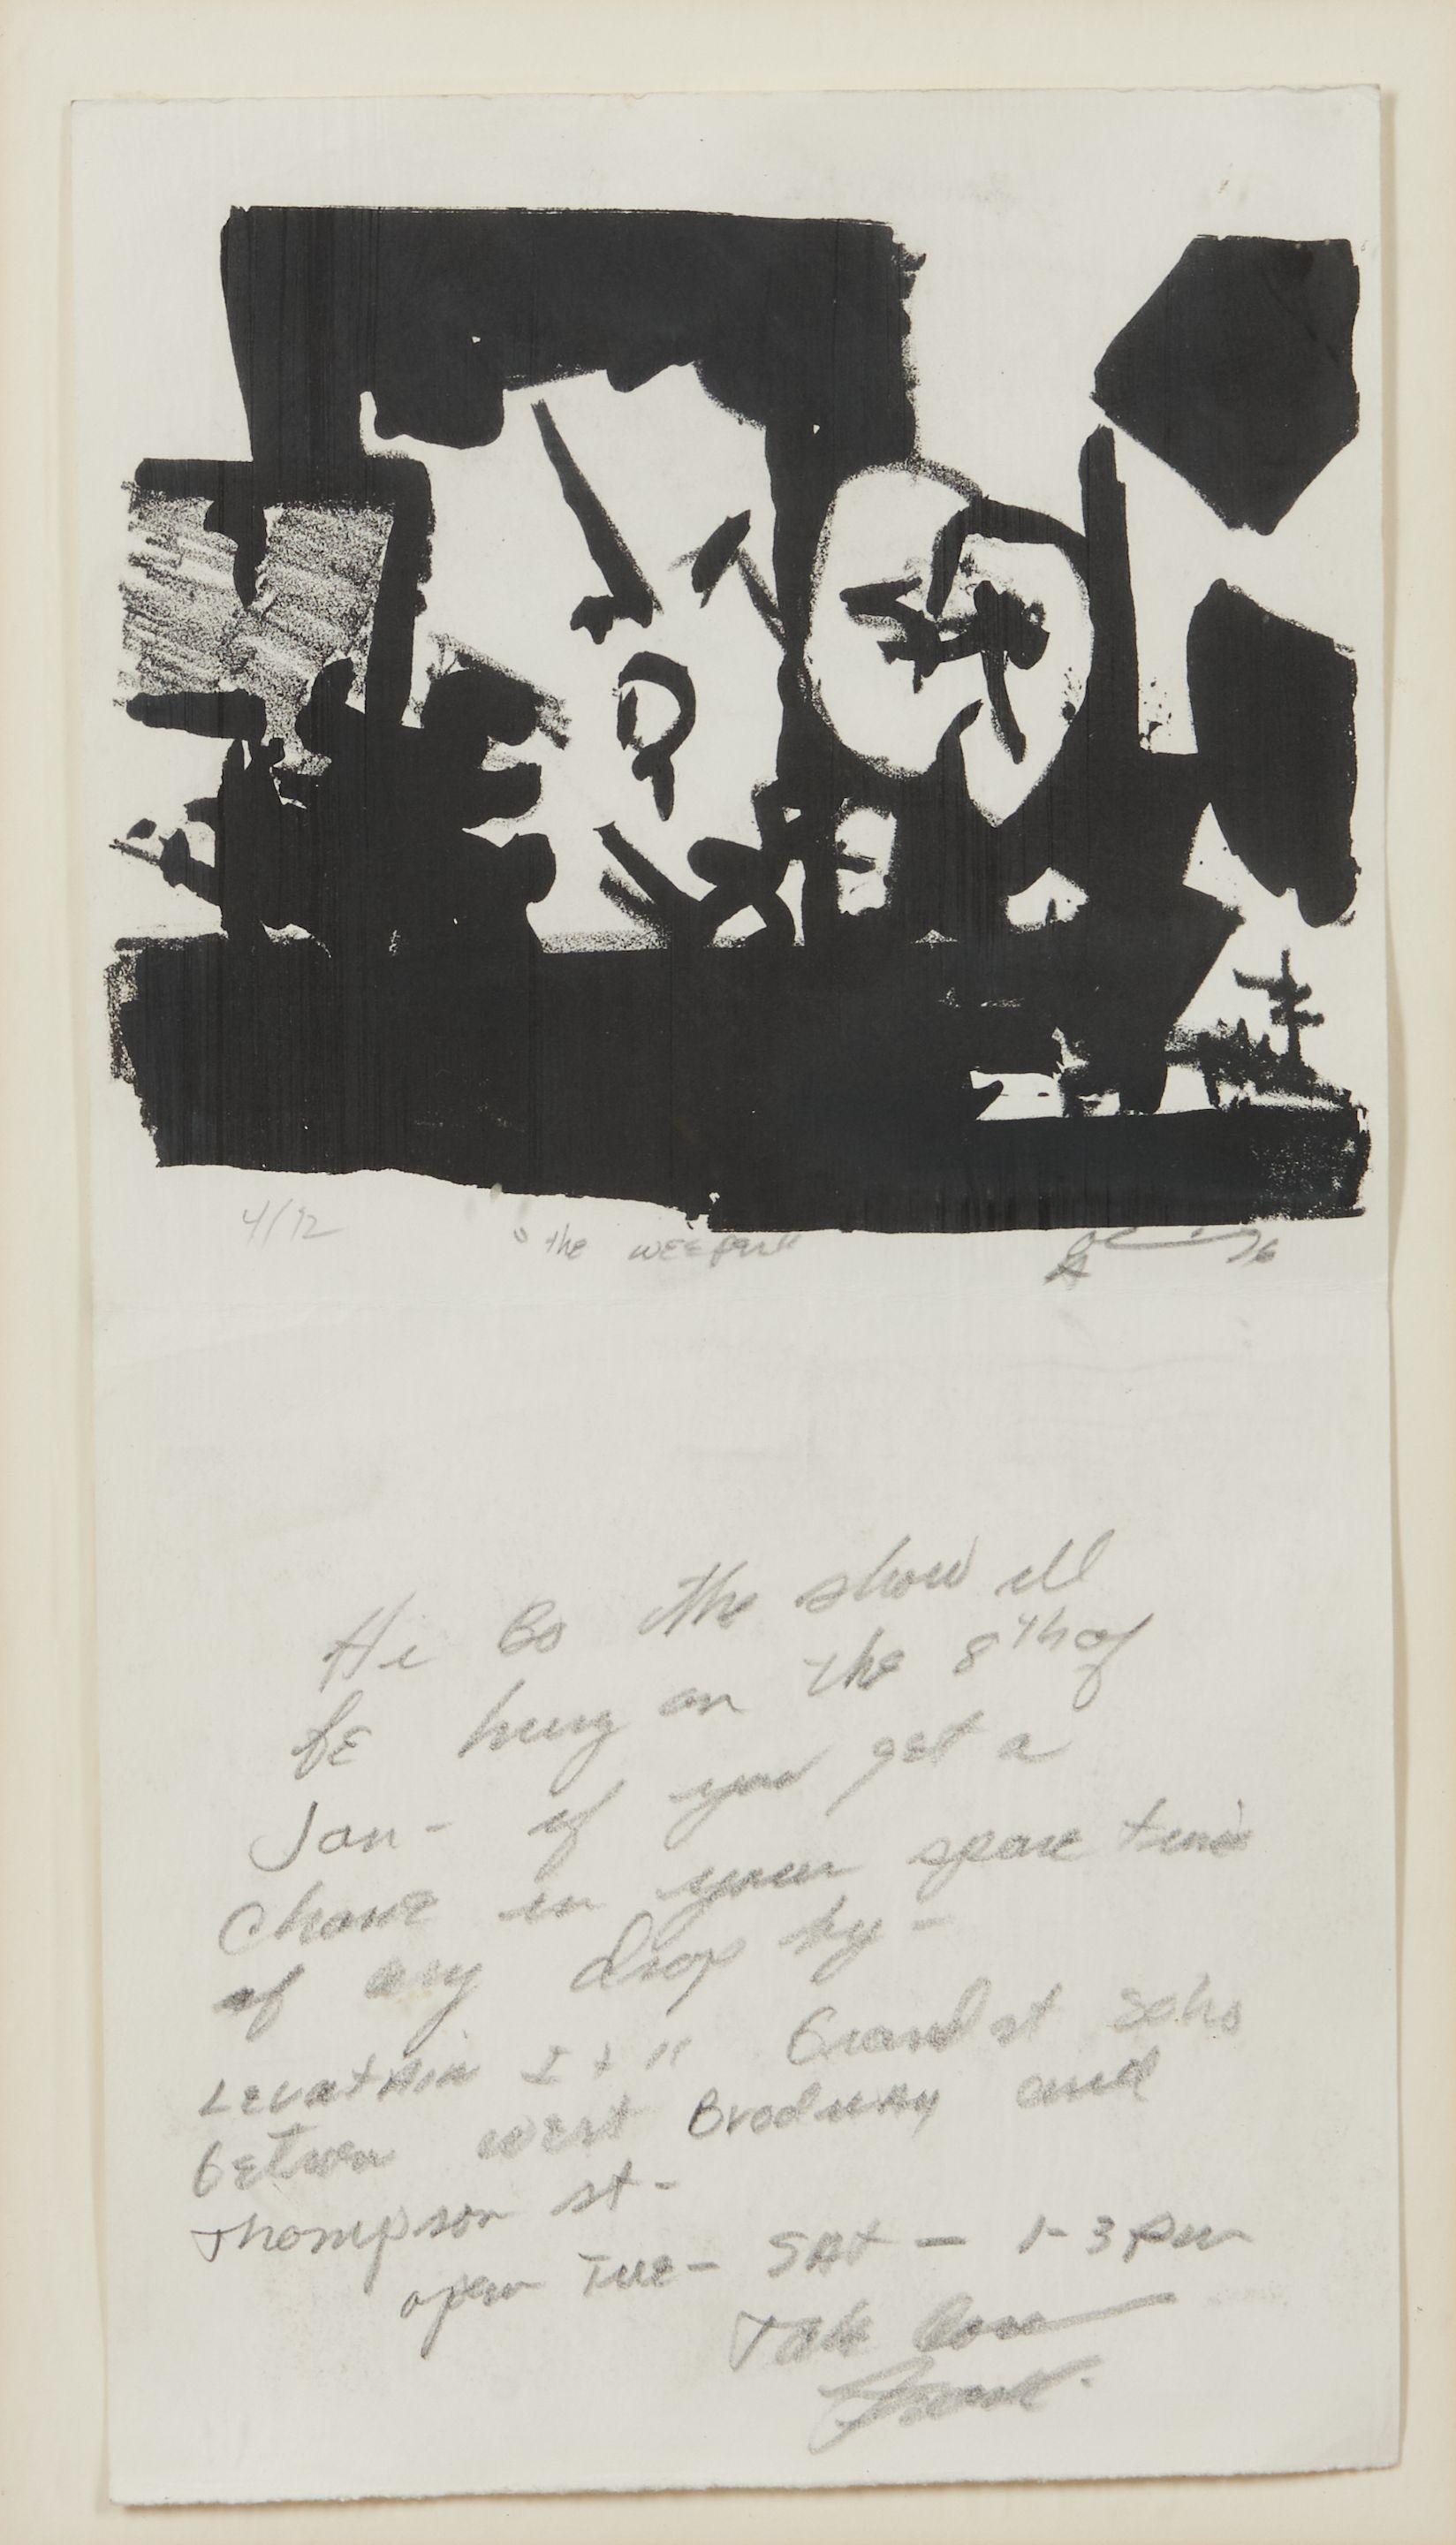 4/12 "the weeper" 76
Hi Bo the show ill
be hung on the 8th of
Jan- if you get a
Chance in your spare time
if any drop by-
Leviathin I + II Grand st Soho
between west Brodway and
Thompson st-
open Tue- SAt - 1-3 pm
Take Care
Frank.